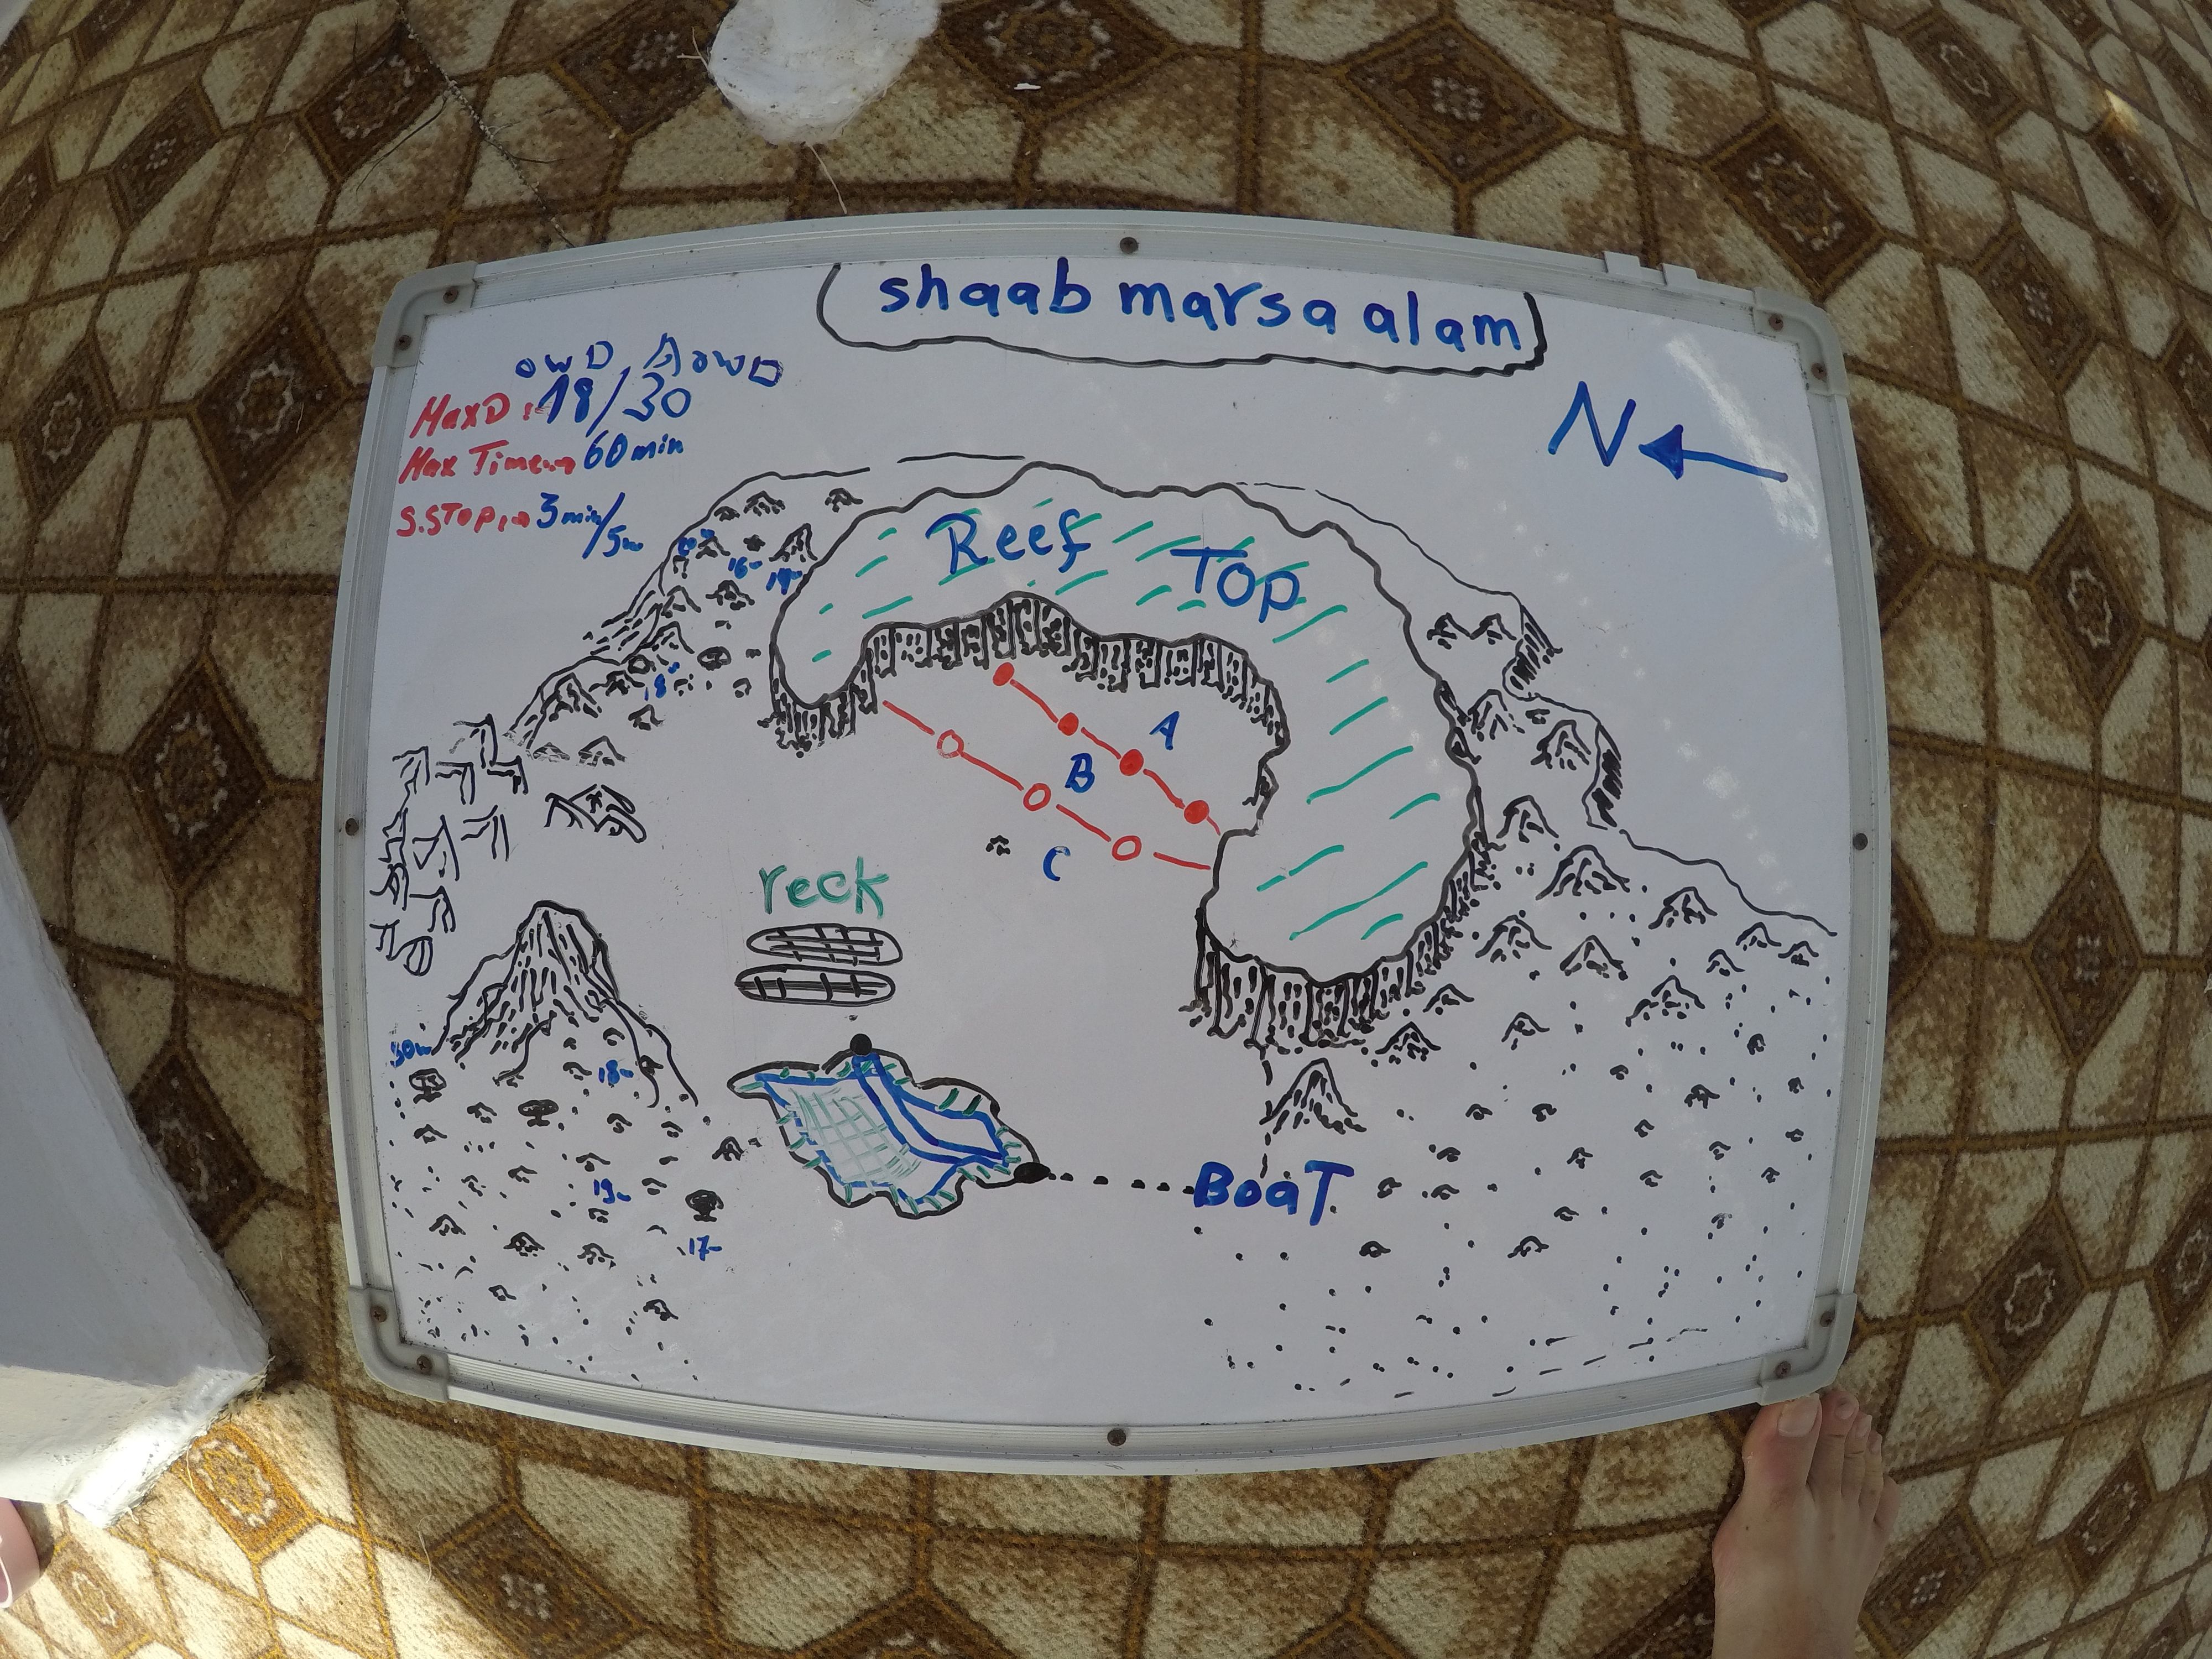 shaab marsa alam
OWD AOWD
MaxD: 18/30
Max Time → 60min
S.STOP → 3min/5m
N
Reef Top
16m
18
A
B
C
reck
30m
18m
19m
17m
BoaT